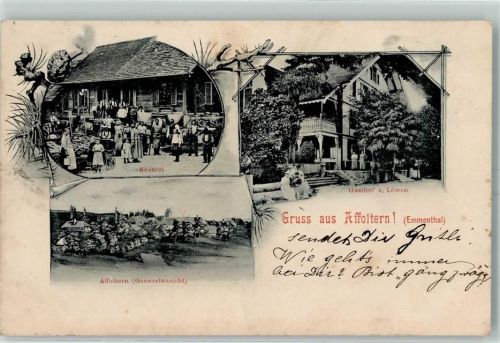 Käserei
Gasthof z. Löwen
Gruss aus Affoltern! (Emmenthal)
Affoltern (Generalansicht)
sendet Dir Grithli.
Wie gehts immer
bei Dir? Bist „gäng zwäg"